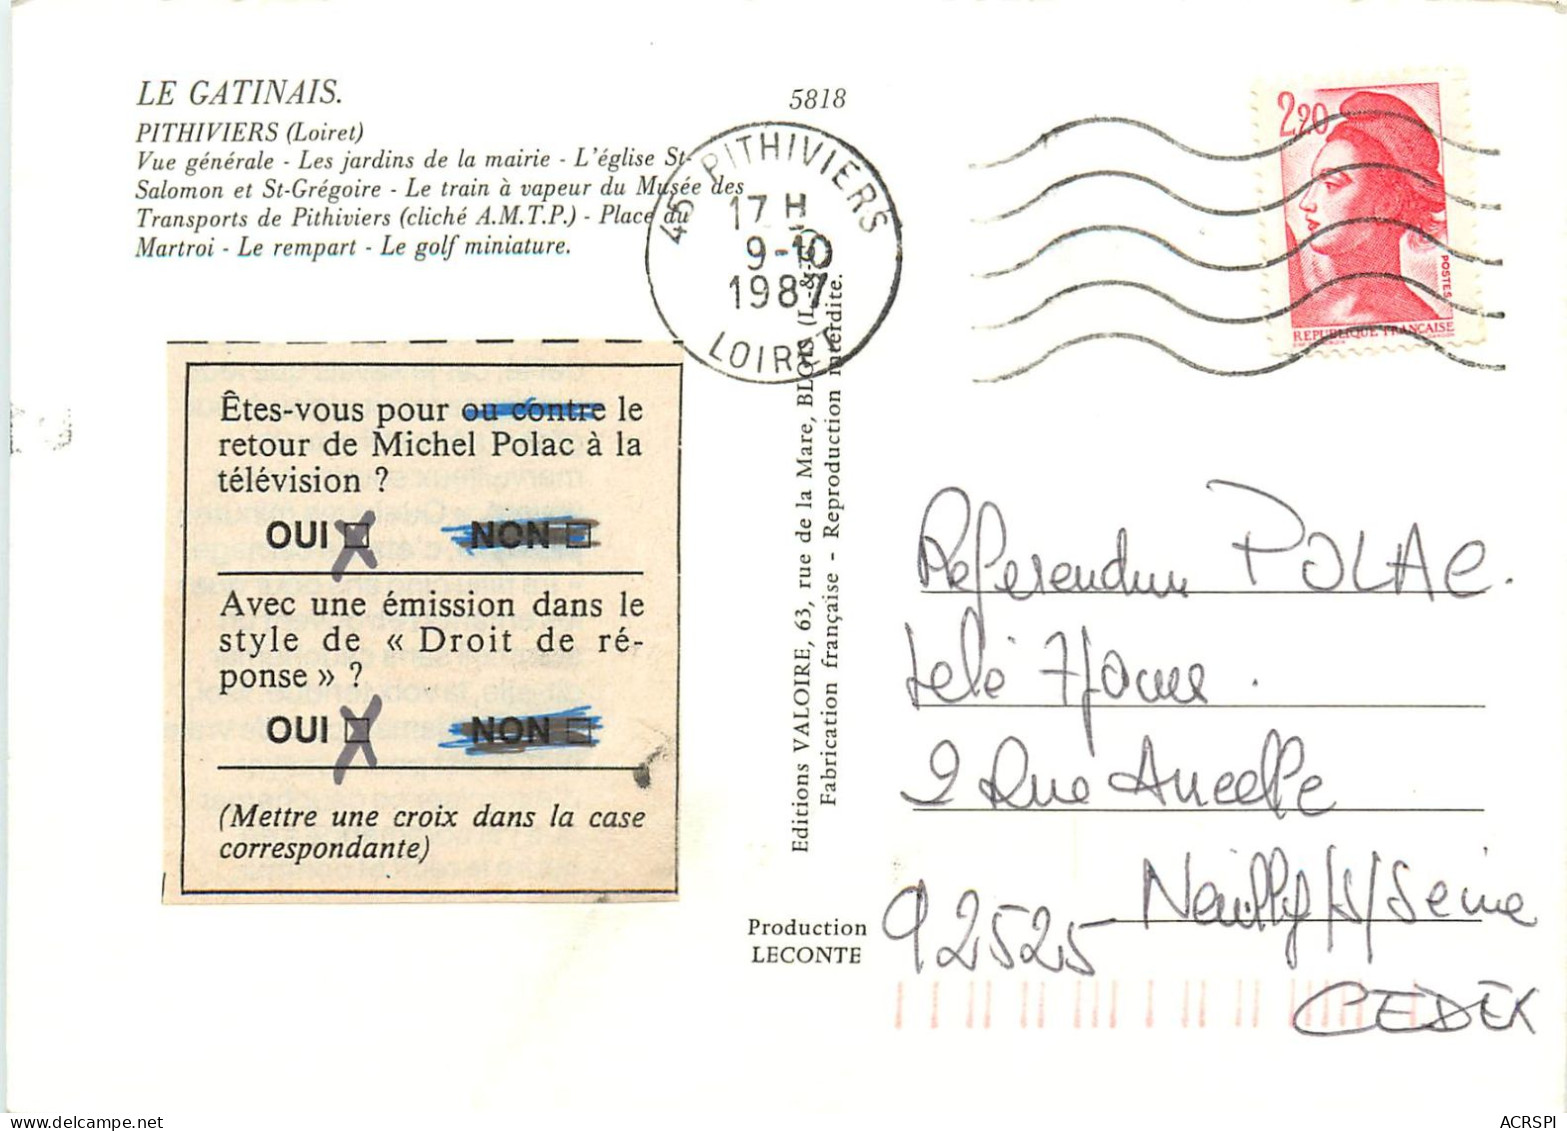 LE GATINAIS.
PITHIVIERS (Loiret)
Vue générale - Les jardins de la mairie - L'église St-
Salomon et St-Grégoire - Le train à vapeur du Musée des
Transports de Pithiviers (cliché A.M.T.P.) - Place du
Martroi - Le rempart - Le golf miniature.
5818
45 PITHIVIERS
17 H
9-10
1987
LOIRET
2,20
POSTES
REPUBLIQUE FRANÇAISE
Êtes-vous pour ou contre le
retour de Michel Polac à la
télévision ?
OUI NON
Avec une émission dans le
style de « Droit de ré-
ponse » ?
OUI NON
(Mettre une croix dans la case
correspondante)
Editions VALOIRE, 63, rue de la Mare, BLOIS (L.-&-C.)
Fabrication française - Reproduction interdite.
Production
LECONTE
Referendum POLAC.
télé 7 Jours.
2 Rue Ancelle
92525 Neuilly/s/Seine
CEDEX
delcampe.net
ACRSPI